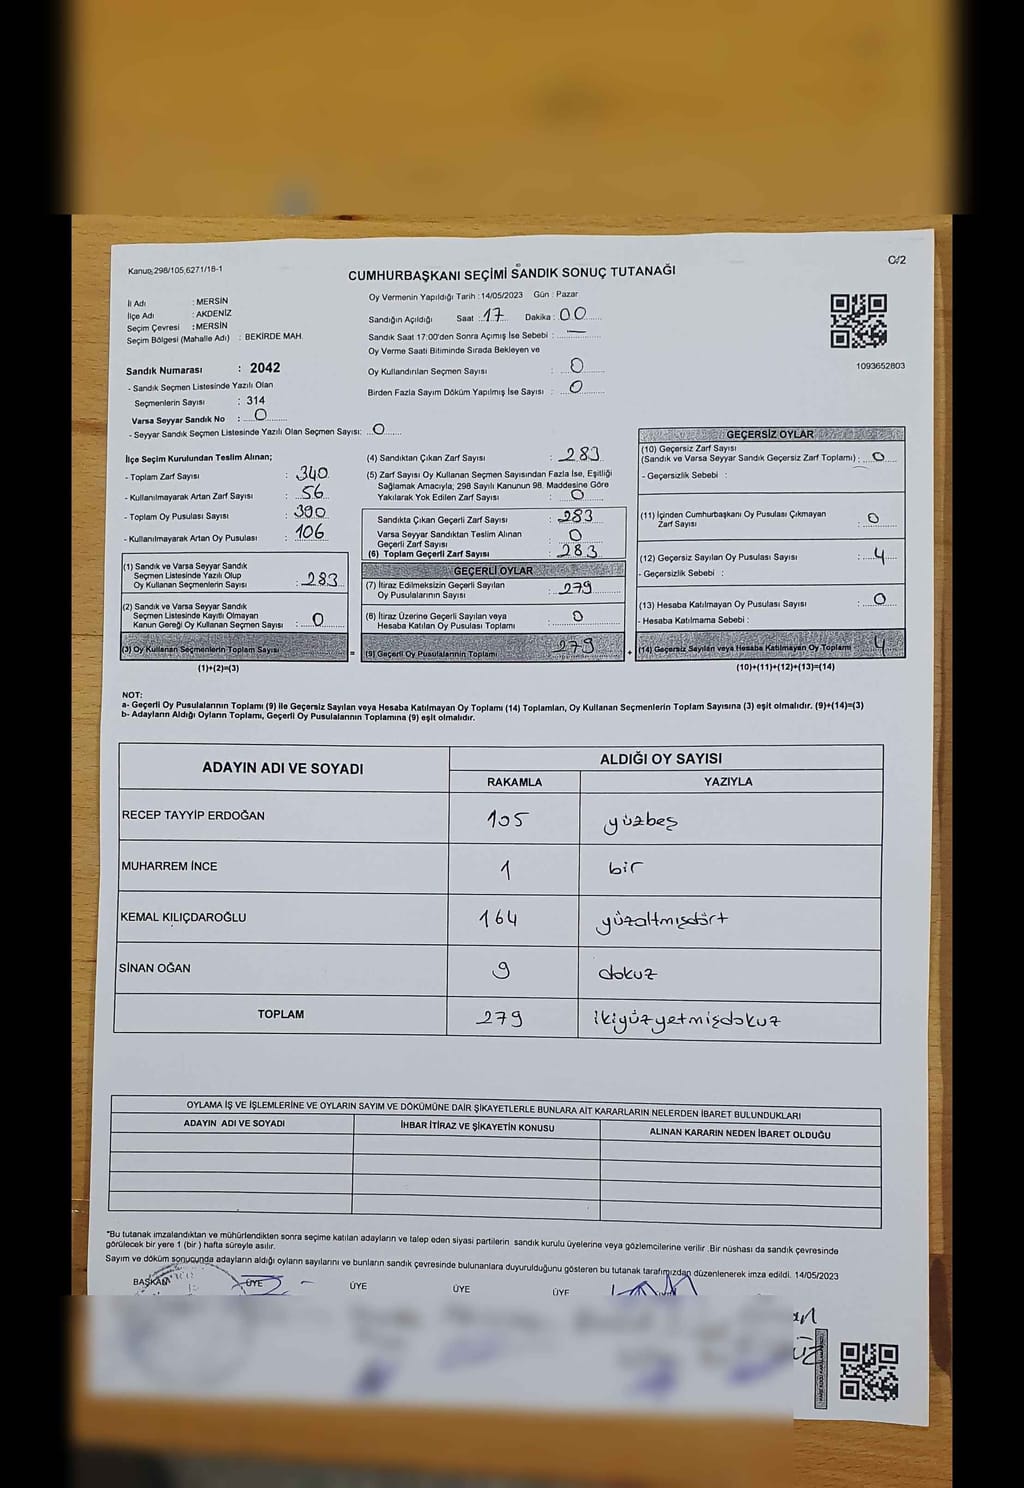 Kanun 298/105,6271/18-1
C/2
CUMHURBAŞKANI SEÇİMİ SANDIK SONUÇ TUTANAĞI
İl Adı : MERSİN
İlçe Adı : AKDENİZ
Seçim Çevresi : MERSİN
Seçim Bölgesi (Mahalle Adı) : BEKİRDE MAH.
Sandık Numarası : 2042
- Sandık Seçmen Listesinde Yazılı Olan
Seçmenlerin Sayısı : 314
Varsa Seyyar Sandık No : 0
- Seyyar Sandık Seçmen Listesinde Yazılı Olan Seçmen Sayısı: 0
Oy Vermenin Yapıldığı Tarih : 14/05/2023 Gün : Pazar
Sandığın Açıldığı Saat : 17 Dakika : 00
Sandık Saat 17:00'den Sonra Açımış İse Sebebi : —
Oy Verme Saati Bitiminde Sırada Bekleyen ve
Oy Kullandırılan Seçmen Sayısı : 0
Birden Fazla Sayım Döküm Yapılmış İse Sayısı : 0
1093652803
İlçe Seçim Kurulundan Teslim Alınan;
- Toplam Zarf Sayısı : 340
- Kullanılmayarak Artan Zarf Sayısı : 56
- Toplam Oy Pusulası Sayısı : 390
- Kullanılmayarak Artan Oy Pusulası : 106
(1) Sandık ve Varsa Seyyar Sandık
Seçmen Listesinde Yazılı Olup
Oy Kullanan Seçmenlerin Sayısı : 283
(2) Sandık ve Varsa Seyyar Sandık
Seçmen Listesinde Kayıtlı Olmayan
Kanun Gereği Oy Kullanan Seçmen Sayısı : 0
(3) Oy Kullanan Seçmenlerin Toplam Sayısı
(1)+(2)=(3)
(4) Sandıktan Çıkan Zarf Sayısı : 283
(5) Zarf Sayısı Oy Kullanan Seçmen Sayısından Fazla İse, Eşitliği
Sağlamak Amacıyla; 298 Sayılı Kanunun 98. Maddesine Göre
Yakılarak Yok Edilen Zarf Sayısı : 0
Sandıkta Çıkan Geçerli Zarf Sayısı : 283
Varsa Seyyar Sandıktan Teslim Alınan
Geçerli Zarf Sayısı : 0
(6) Toplam Geçerli Zarf Sayısı : 283
GEÇERLİ OYLAR
(7) İtiraz Edilmeksizin Geçerli Sayılan
Oy Pusulalarının Sayısı : 279
(8) İtiraz Üzerine Geçerli Sayılan veya
Hesaba Katılan Oy Pusulası Toplamı : 0
= (9) Geçerli Oy Pusulalarının Toplamı 279
GEÇERSİZ OYLAR
(10) Geçersiz Zarf Sayısı
(Sandık ve Varsa Seyyar Sandık Geçersiz Zarf Toplamı) : 0
- Geçersizlik Sebebi :
(11) İçinden Cumhurbaşkanı Oy Pusulası Çıkmayan
Zarf Sayısı : 0
(12) Geçersiz Sayılan Oy Pusulası Sayısı : 4
- Geçersizlik Sebebi :
(13) Hesaba Katılmayan Oy Pusulası Sayısı : 0
- Hesaba Katılmama Sebebi :
+ (14) Geçersiz Sayılan veya Hesaba Katılmayan Oy Toplamı 4
(10)+(11)+(12)+(13)=(14)
NOT:
a- Geçerli Oy Pusulalarının Toplamı (9) ile Geçersiz Sayılan veya Hesaba Katılmayan Oy Toplamı (14) Toplamları, Oy Kullanan Seçmenlerin Toplam Sayısına (3) eşit olmalıdır. (9)+(14)=(3)
b- Adayların Aldığı Oyların Toplamı, Geçerli Oy Pusulalarının Toplamına (9) eşit olmalıdır.
ADAYIN ADI VE SOYADI
ALDIĞI OY SAYISI
RAKAMLA YAZIYLA
RECEP TAYYİP ERDOĞAN 105 yüzbeş
MUHARREM İNCE 1 bir
KEMAL KILIÇDAROĞLU 164 yüzaltmışdört
SİNAN OĞAN 9 dokuz
TOPLAM 279 ikiyüzyetmişdokuz
OYLAMA İŞ VE İŞLEMLERİNE VE OYLARIN SAYIM VE DÖKÜMÜNE DAİR ŞİKAYETLERLE BUNLARA AİT KARARLARIN NELERDEN İBARET BULUNDUKLARI
ADAYIN ADI VE SOYADI İHBAR İTİRAZ VE ŞİKAYETİN KONUSU ALINAN KARARIN NEDEN İBARET OLDUĞU
*Bu tutanak imzalandıktan ve mühürlendikten sonra seçime katılan adayların ve talep eden siyasi partilerin sandık kurulu üyelerine veya gözlemcilerine verilir .Bir nüshası da sandık çevresinde
görülecek bir yere 1 (bir ) hafta süreyle asılır.
Sayım ve döküm sonucunda adayların aldığı oyların sayılarını ve bunların sandık çevresinde bulunanlara duyurulduğunu gösteren bu tutanak tarafımızdan düzenlenerek imza edildi. 14/05/2023
BAŞKAN ÜYE ÜYE ÜYE ÜYE